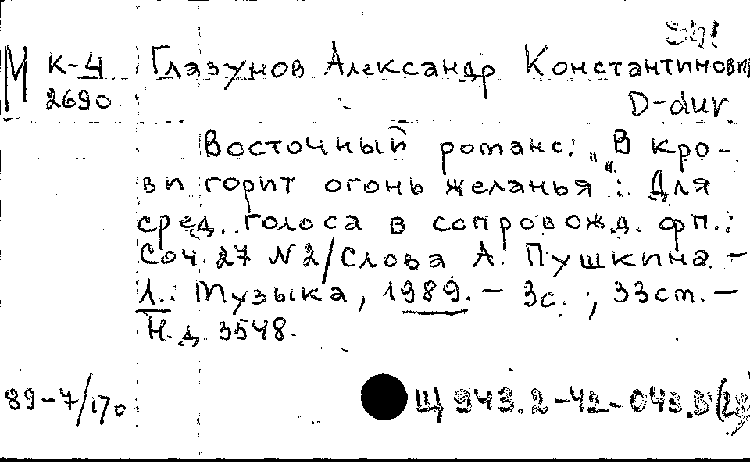 М К-4 Глазунов Александр Константинович
2690
D-dur
Восточный романс: „В кро-
ви горит огонь желанья“: Для
сред. голоса в сопровожд. фп.:
Соч. 27 N2/Слова А. Пушкина. -
Л.: Музыка, 1989. - 3с.; 33см. -
Н.д. 3548.
89-7/170
Щ 943.2-42-043.3(28)